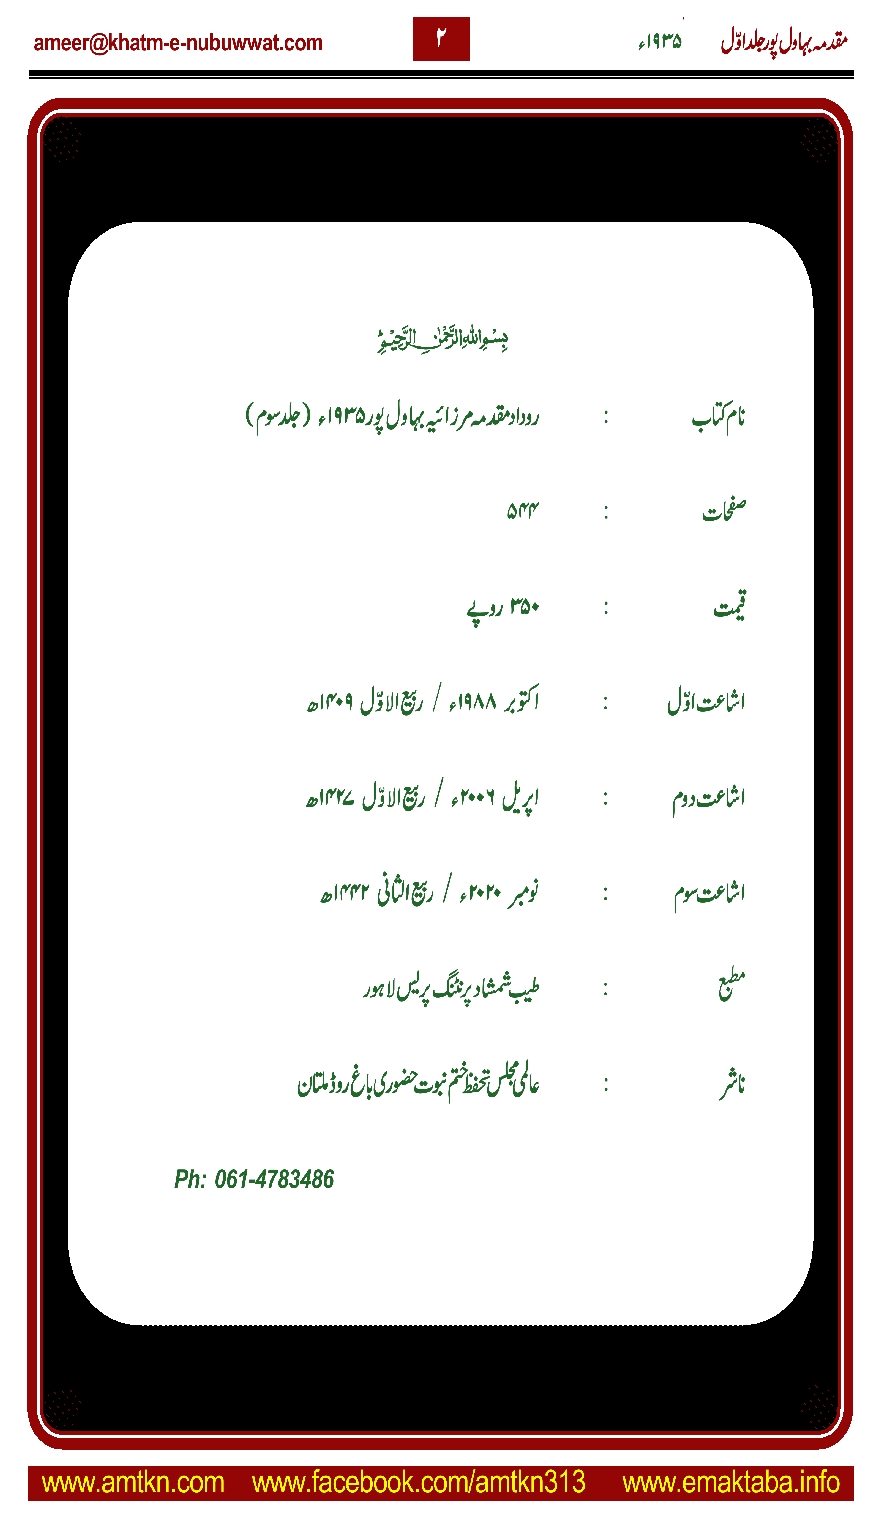 مقدمہ بہاول پور جلد اوّل ۱۹۳۵ء ۲ ameer@khatm-e-nubuwwat.com
بسم اللہ الرحمٰن الرحیم
نام کتاب : روداد مقدمہ مرزائیہ بہاول پور ۱۹۳۵ء (جلد سوم)
صفحات : ۵۴۴
قیمت : ۳۵۰ روپے
اشاعت اوّل : اکتوبر ۱۹۸۸ء / ربیع الاوّل ۱۴۰۹ھ
اشاعت دوم : اپریل ۲۰۰۶ء / ربیع الاوّل ۱۴۲۷ھ
اشاعت سوم : نومبر ۲۰۲۰ء / ربیع الثانی ۱۴۴۲ھ
مطبع : طیب شمشاد پرنٹنگ پریس لاہور
ناشر : عالمی مجلس تحفظ ختم نبوت حضوری باغ روڈ ملتان
Ph: 061-4783486
www.amtkn.com www.facebook.com/amtkn313 www.emaktaba.info